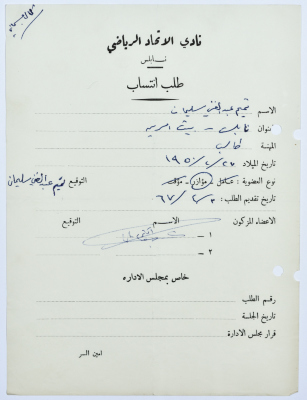 نادي الاتحاد الرياضي
نابلس
طلب انتساب
الاسم تميم عبد الغني سليمان
عنوان نابلس - بيت امريه
المهنة طالب
تاريخ الميلاد ١٩٥٠/٢/٢٥
نوع العضوية : عامل - مؤازر - مؤقت التوقيع تميم عبد الغني سليمان
تاريخ تقديم الطلب : ٦٧/٢/٣
الاعضاء المزكون الاسم التوقيع
١ -
٢ -
خاص بمجلس الاداره
رقم الطلب
تاريخ الجلسة
قرار مجلس الادارة
امين السر